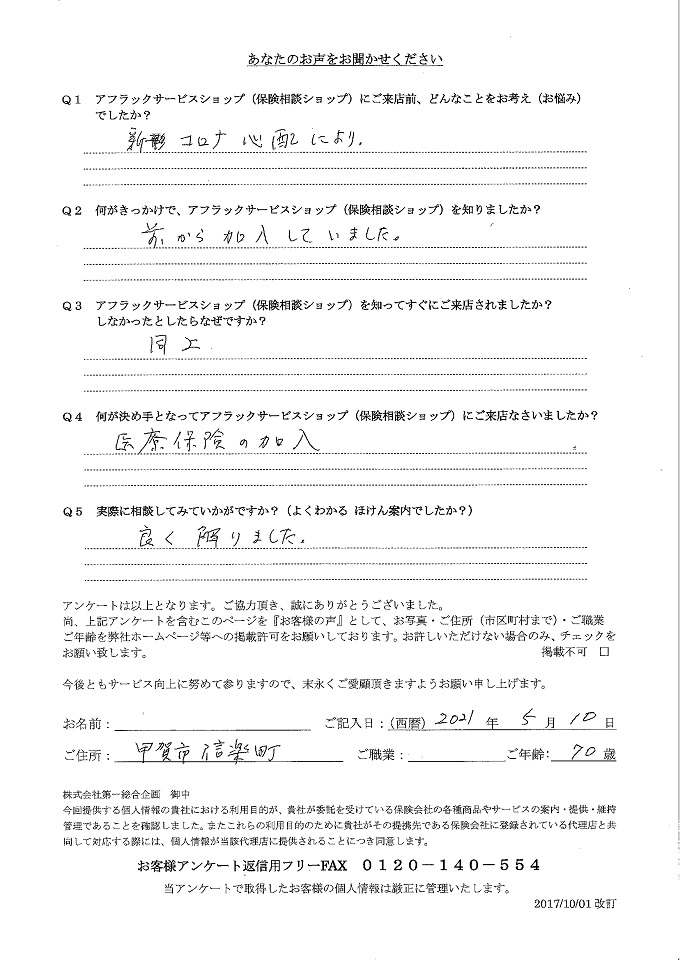 あなたのお声をお聞かせください
Q1 アフラックサービスショップ（保険相談ショップ）にご来店前、どんなことをお考え（お悩み）
でしたか？
新型コロナ心配により。
Q2 何がきっかけで、アフラックサービスショップ（保険相談ショップ）を知りましたか？
前から加入していました。
Q3 アフラックサービスショップ（保険相談ショップ）を知ってすぐにご来店されましたか？
しなかったとしたらなぜですか？
同上
Q4 何が決め手となってアフラックサービスショップ（保険相談ショップ）にご来店なさいましたか？
医療保険の加入
Q5 実際に相談してみていかがですか？（よくわかる ほけん案内でしたか？）
良く解りました。
アンケートは以上となります。ご協力頂き、誠にありがとうございました。
尚、上記アンケートを含むこのページを『お客様の声』として、お写真・ご住所（市区町村まで）・ご職業
ご年齢を弊社ホームページ等への掲載許可をお願いしております。お許しいただけない場合のみ、チェックを
お願い致します。 掲載不可 □
今後ともサービス向上に努めて参りますので、末永くご愛顧頂きますようお願い申し上げます。
お名前： ご記入日：（西暦）2021 年 5 月 10 日
ご住所：甲賀市信楽町 ご職業： ご年齢：70 歳
株式会社第一総合企画 御中
今回提供する個人情報の貴社における利用目的が、貴社が委託を受けている保険会社の各種商品やサービスの案内・提供・維持
管理であることを確認しました。またこれらの利用目的のために貴社がその提携先である保険会社に登録されている代理店と共
同して対応する際には、個人情報が当該代理店に提供されることにつき同意します。
お客様アンケート返信用フリーFAX 0120－140－554
当アンケートで取得したお客様の個人情報は厳正に管理いたします。
2017/10/01 改訂